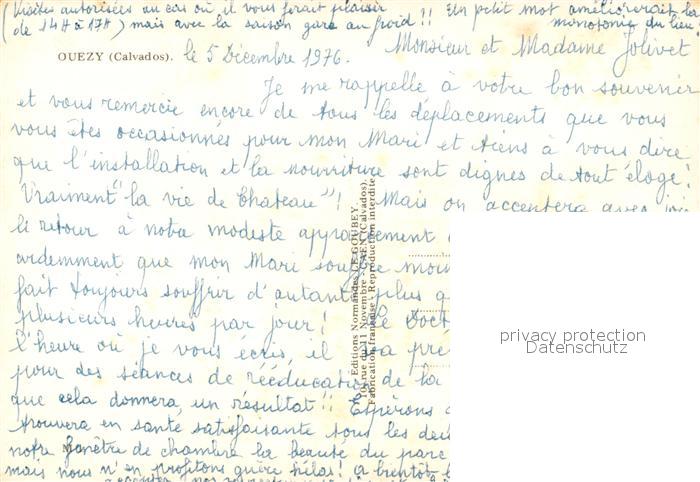 (Visites autorisées au cas où il vous ferait plaisir
(de 14H à 17H) mais avec la saison gare au froid !!
Un petit mot améliorerait la
monotonie du lieu.
Monsieur et Madame Jolivet
OUEZY (Calvados). le 5 Décembre 1976.
Je me rappelle à votre bon souvenir
et vous remercie encore de tous les déplacements que vous
vous êtes occasionnés pour mon Mari et tiens à vous dire
que l'installation et la nourriture sont dignes de tout éloge.
Vraiment "la vie de Chateau"! Mais on acceptera avec joie
le retour à notre modeste appartement
ardemment que mon Mari souffre
fait toujours souffrir d'autant plus
plusieurs heures par jour!
l'heure où je vous écris, il
pour des séances de rééducation de la
que cela donnera un résultat!! Espérons
trouvera en santé satisfaisante tous les
notre fenêtre de chambre la beauté du parc
mais nous n'en profitons guère hélas! à bientôt
Editions Normandes LE GOUBEY
10, rue du 11 Novembre - CAEN (Calvados).
Fabrication française - Reproduction interdite
privacy protection
Datenschutz